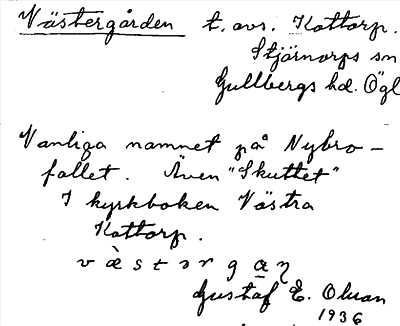 Västergården t. avs. Kattorp.
Stjärnorps sn
Gullbergs hd. Ögl
Vanliga namnet på Nybro-
fallet. Även "Skuttet"
I kyrkboken Västra
Kattorp.
v ὰ s t ə r g a ɳ
Gustaf E. Olsson
1936